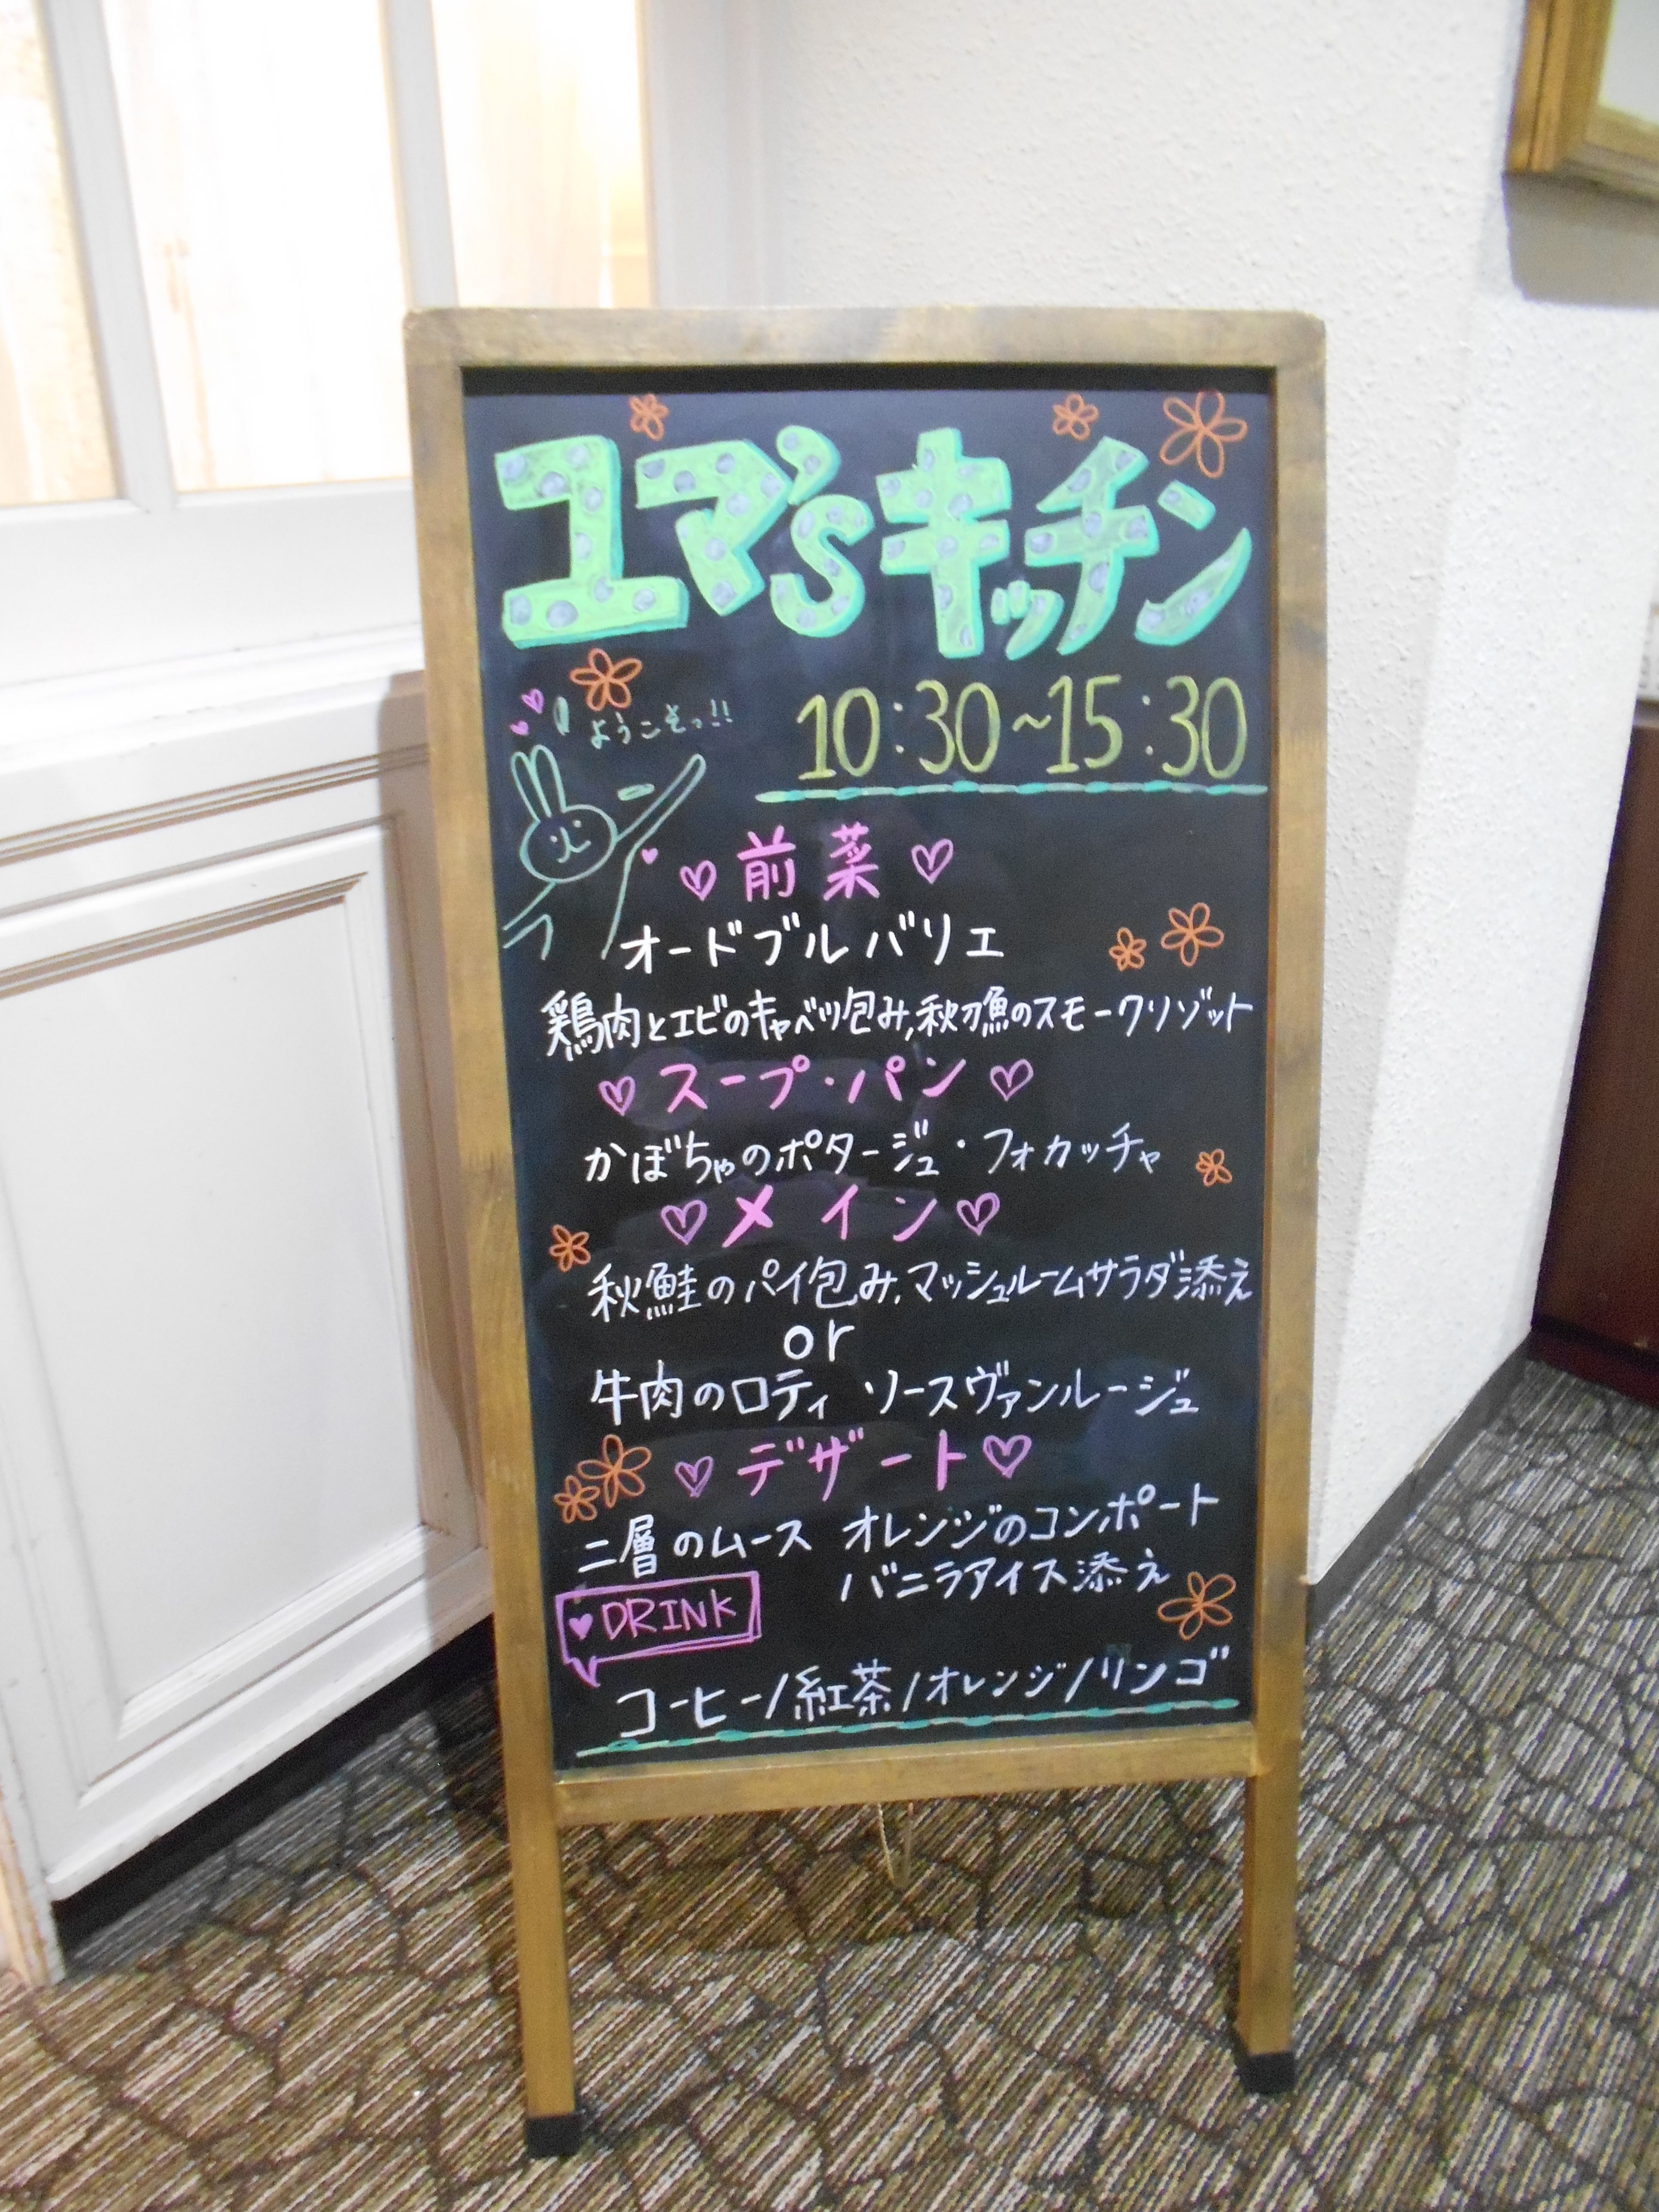 ユマ'sキッチン
ようこそっ!!
10:30~15:30
前菜
オードブルバリエ
鶏肉とエビのキャベツ包み,秋刀魚のスモークリゾット
スープ・パン
かぼちゃのポタージュ・フォカッチャ
メイン
秋鮭のパイ包み,マッシュルームサラダ添え
or
牛肉のロティ ソースヴァンルージュ
デザート
二層のムース オレンジのコンポート
バニラアイス添え
DRINK
コーヒー/紅茶/オレンジ/リンゴ